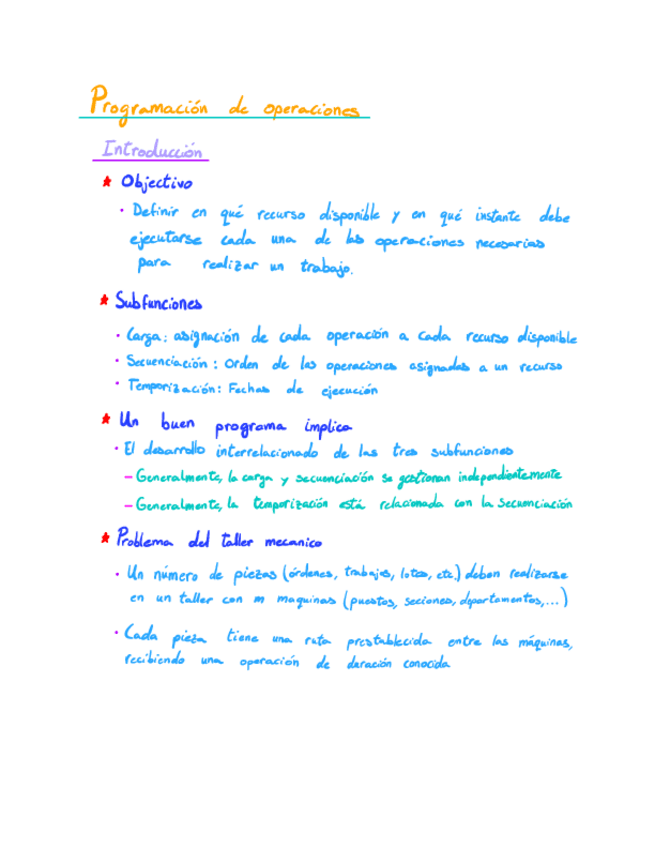 Programación de operaciones
Introducción
* Objectivo
· Definir en qué recurso disponible y en qué instante debe
ejecutarse cada una de las operaciones necesarias
para realizar un trabajo.
* Subfunciones
· Carga: asignación de cada operación a cada recurso disponible
· Secuenciación: Orden de las operaciones asignadas a un recurso
· Temporización: Fechas de ejecución
* Un buen programa implica
· El desarrollo interrelacionado de las tres subfunciones
- Generalmente, la carga y secuenciación se gestionan independientemente
- Generalmente, la temporización está relacionada con la secuenciación
* Problema del taller mecanico
· Un número de piezas (órdenes, trabajos, lotes, etc.) deben realizarse
en un taller con m maquinas (puestos, seciones, departamentos,...)
· Cada pieza tiene una ruta prestablecida entre las máquinas,
recibiendo una operación de duración conocida